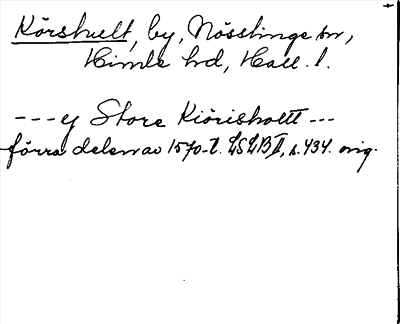 Körshult, by, Nösslinge sn,
Himle hd, Hall. l.
--- ej Store Kiörisholtt ---
förra delen av 1570-t. LSLB II, s. 434. orig.